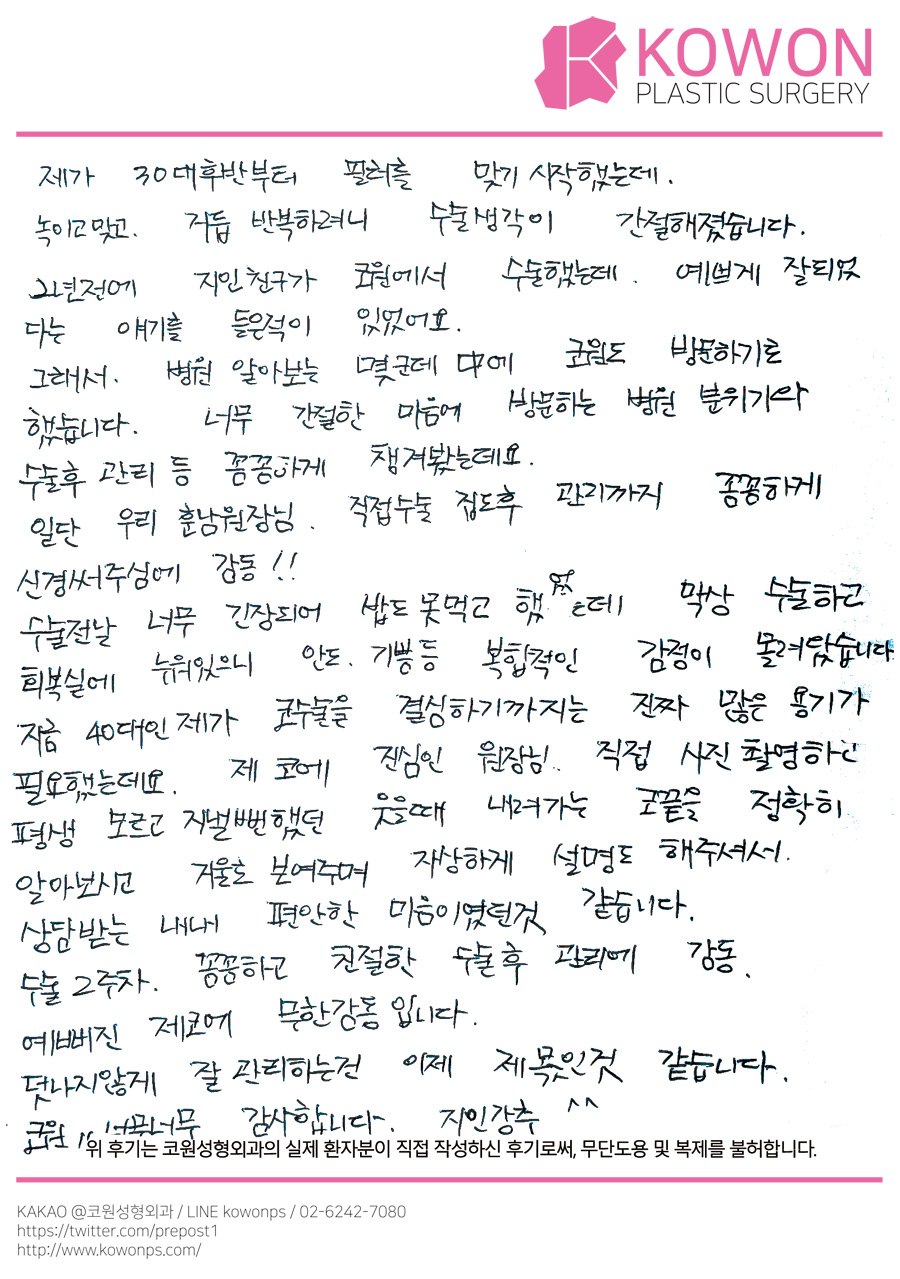 KOWON
PLASTIC SURGERY
제가 30대후반부터 필러를 맞기 시작했는데.
녹이고 맞고. 거듭 반복하려니 수술생각이 간절해졌습니다.
그년전에 지인친구가 코원에서 수술했는데. 예쁘게 잘되었
다는 얘기를 들은적이 있었어요.
그래서. 병원 알아보는 몇군데 中에 코원도 방문하기로
했습니다. 너무 간절한 마음에 방문하는 병원 분위기와
수술후 관리 등 꼼꼼하게 챙겨봤는데요.
일단 우리 훈남원장님. 직접수술 집도후 관리까지 꼼꼼하게
신경써주심에 감동!!
수술전날 너무 긴장되어 밥도 못먹고 했었는데 막상 수술하고
회복실에 누워있으니 안도. 기쁨등 복합적인 감정이 몰려왔습니다
지금 40대인 제가 코수술을 결심하기까지는 진짜 많은 용기가
필요했는데요. 제 코에 진심인 원장님. 직접 사진 촬영하고
평생 모르고 지낼뻔했던 웃을때 내려가는 코끝을 정확히
알아보시고 거울로 보여주며 자상하게 설명도 해주셔서.
상담받는 내내 편안한 마음이였던것 같습니다.
수술 2주차. 꼼꼼하고 친절한 수술후 관리에 감동.
예뻐진 제코에 무한감동입니다.
덧나지않게 잘 관리하는건 이제 제 몫인것 같습니다.
코원 너무너무 감사합니다. 지인강추 ^^
위 후기는 코원성형외과의 실제 환자분이 직접 작성하신 후기로써, 무단도용 및 복제를 불허합니다.
KAKAO @코원성형외과 / LINE kowonps / 02-6242-7080
https://twitter.com/prepost1
http://www.kowonps.com/